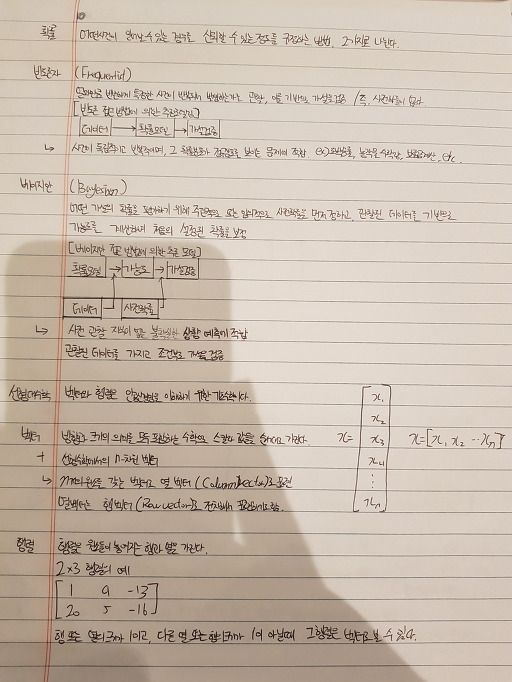 확률 어떤사건이 일어날 수 있는 경우를 신뢰할 수 있는 정도를 규정하는 방법, 2가지로 나뉜다.
빈도론자 (Frequentist)
얼마만큼 빈번하게 특정한 사건이 반복되어 발생하는가를 관찰, 이를 기반으로 가설을 검증 / 즉, 사전확률이 없다
[빈도론 접근 방법에 의한 추론모델링]
데이터 → 확률모델 → 가설검증
↳ 사건이 독립적이고 반복적이며, 그 확률분포가 정규분포를 보이는 문제에 적합 ex) 강수량, 보험료계산, etc.
베이지안 (Bayesian)
어떤 가설의 확률을 평가하기 위해 주관적으로 또는 임의적으로 사전확률을 먼저 정하고, 관찰된 데이터를 기반으로
가능도를 계산하여 처음에 설정된 확률을 보정
[베이지안 접근 방법에 의한 추론 모델]
확률모델 → 가능도 → 가설검증
데이터 사전확률
↳ 사전 관찰 지식이 없는 불확실한 상황 예측에 적합
관찰된 데이터를 가지고 조건부로 가설을 검증
선형대수학 벡터와 행렬은 인공신경망을 이해하기 위한 기초수학이다.
벡터 방향과 크기의 의미를 모두 포함하는 수학으로 스칼라 값들을 순서대로 가진다.
+ 선형대수학에서의 n차원 벡터
↳ n개의 원소를 갖는 벡터로 열 벡터 (Column Vector)로 표현
열벡터는 행 벡터 (Row vector)로 전치하여 표현하기도함.
x =
[x₁
x₂
x₃
x₄
⋮
xₙ]
x = [x₁ x₂ ⋯ xₙ]
행렬 행렬은 원소들이 놓여지는 행과 열을 가진다.
2×3 행렬의 예
[1 9 -13
20 5 -16]
행 또는 열의 크기가 1이고, 다른 열 또는 행의 크기가 1이 아닐때 그 행렬은 벡터로 볼 수 있다.